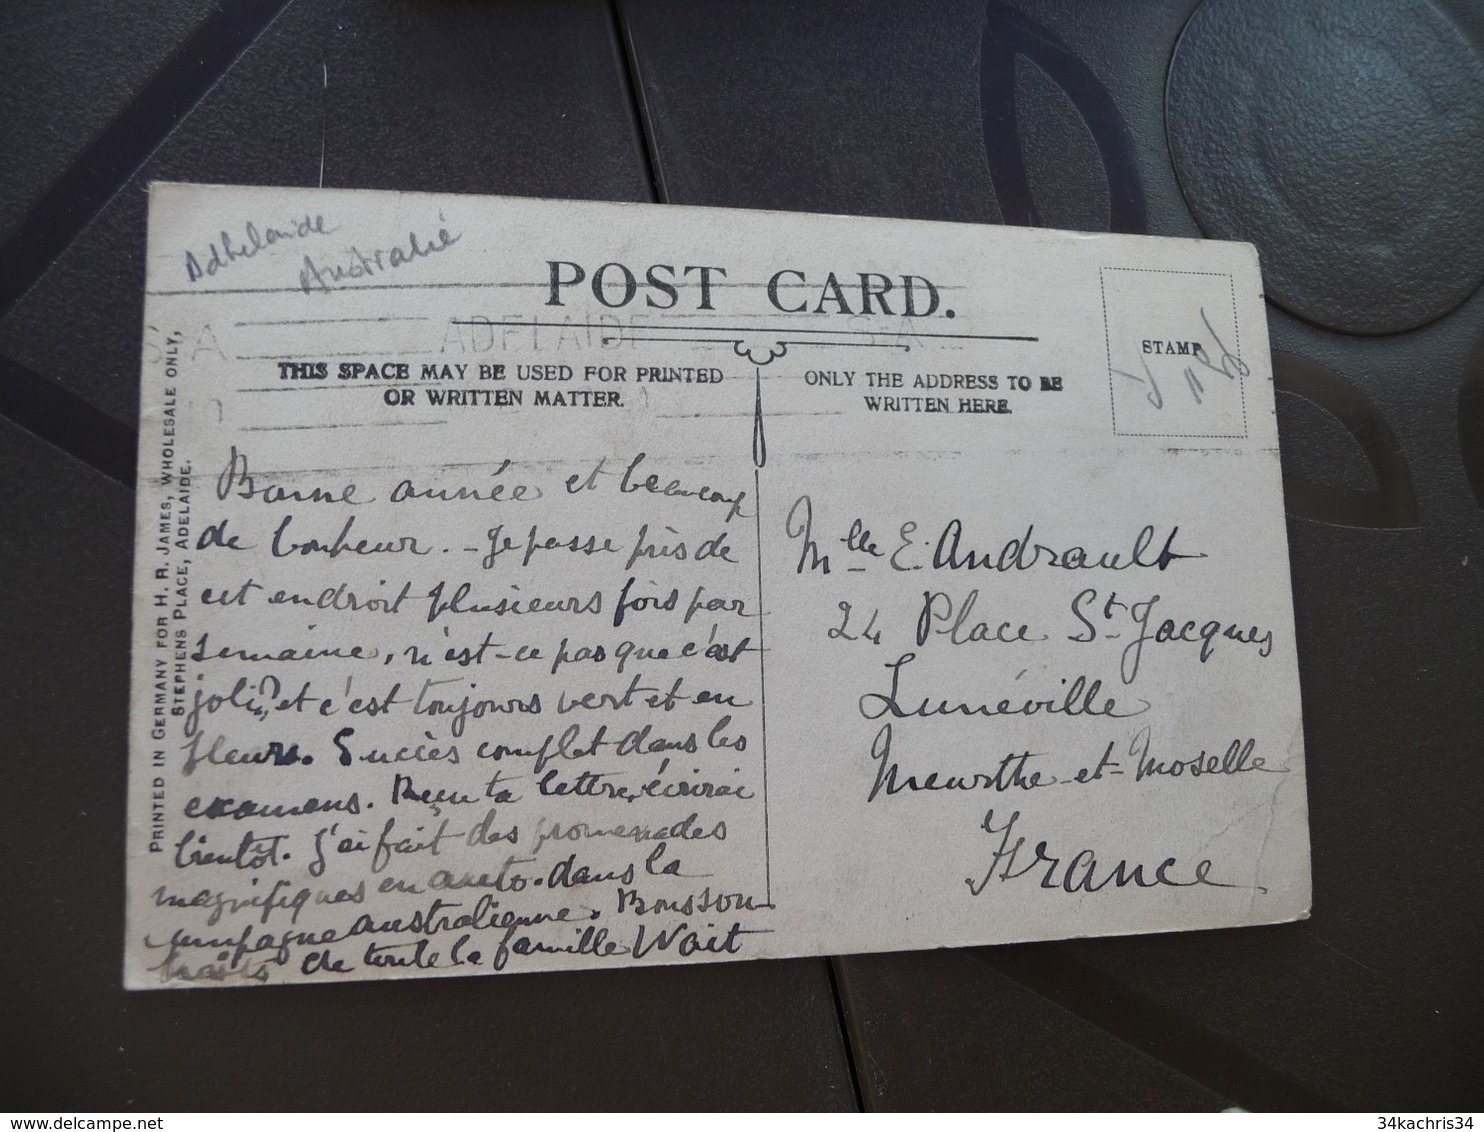 Adhelaide
Australie
POST CARD.
ADELAIDE S-A
A
THIS SPACE MAY BE USED FOR PRINTED
OR WRITTEN MATTER.
ONLY THE ADDRESS TO BE
WRITTEN HERE.
STAMP
PRINTED IN GERMANY FOR H. R. JAMES, WHOLESALE ONLY,
STEPHENS PLACE, ADELAIDE.
Bonne année et beaucoup
de bonheur. – Je passe près de
cet endroit plusieurs fois par
semaine, n'est-ce pas que c'est
joli? et c'est toujours vert et en
fleurs. Succès complet dans les
examens. Reçu ta lettre, écrirai
bientôt. J'ai fait des promenades
magnifiques en auto. dans la
campagne australienne. Bons sou-
haits de toute la famille Wait
Mlle E. Andrault
24 Place St-Jacques
Lunéville
Meurthe-et-Moselle
France.
34kachris34